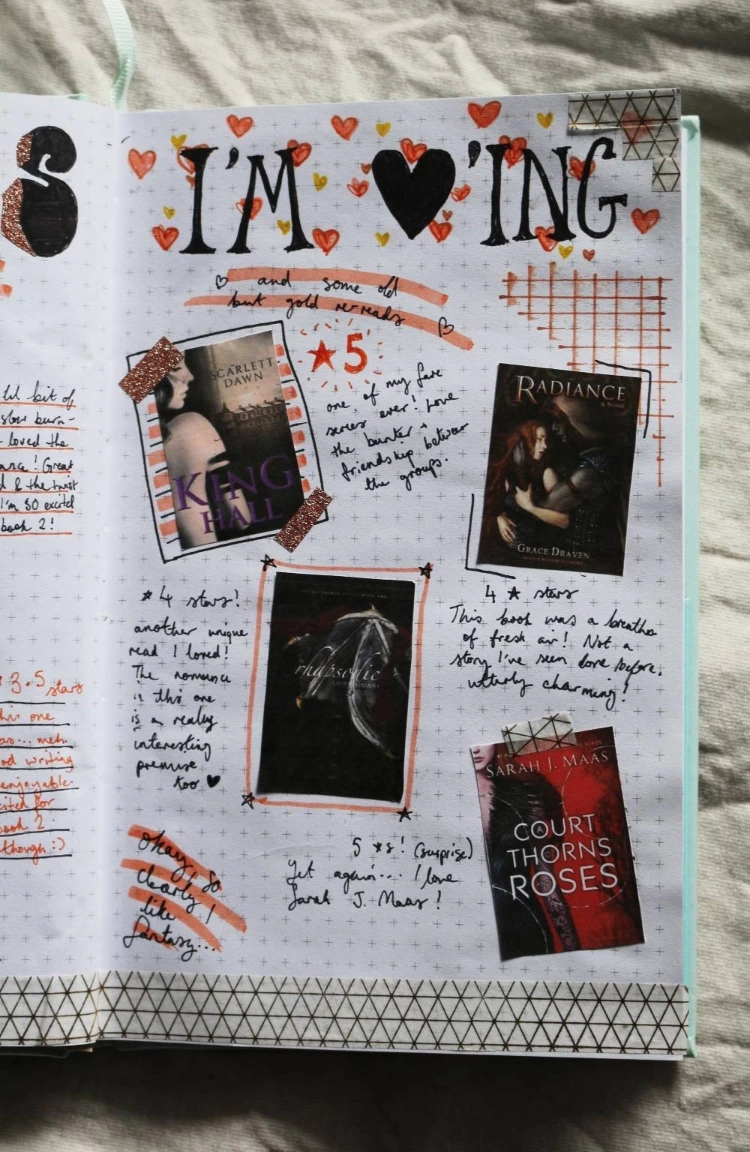 S
lil bit of
slow burn -
loved the
Great
d & the twist
I'm so excited
book 2!
3.5 stars
this one
as... meh
od writing
enjoyable
cited for
book 2
though :)
I'M ♥'ING
♡ and some old
but gold re-reads ♡
★5
SCARLETT
DAWN
KING
HALL
one of my fave
series ever! Love
the banter +
friendship between
the groups.
RADIANCE
A Novel
GRACE DRAVEN
4 ★ stars
This book was a breathe
of fresh air! Not a
story I've seen done before.
utterly charming!
★ 4 stars!
another unique
read I loved!
The romance
in this one
is a really
interesting
premise
too ♥
rhapsodic
SARAH J. MAAS
A
COURT
OF
THORNS
AND
ROSES
5 ★s! (surprise)
Yet again... I love
Sarah J. Maas!
Okay, so
clearly I
like
fantasy...